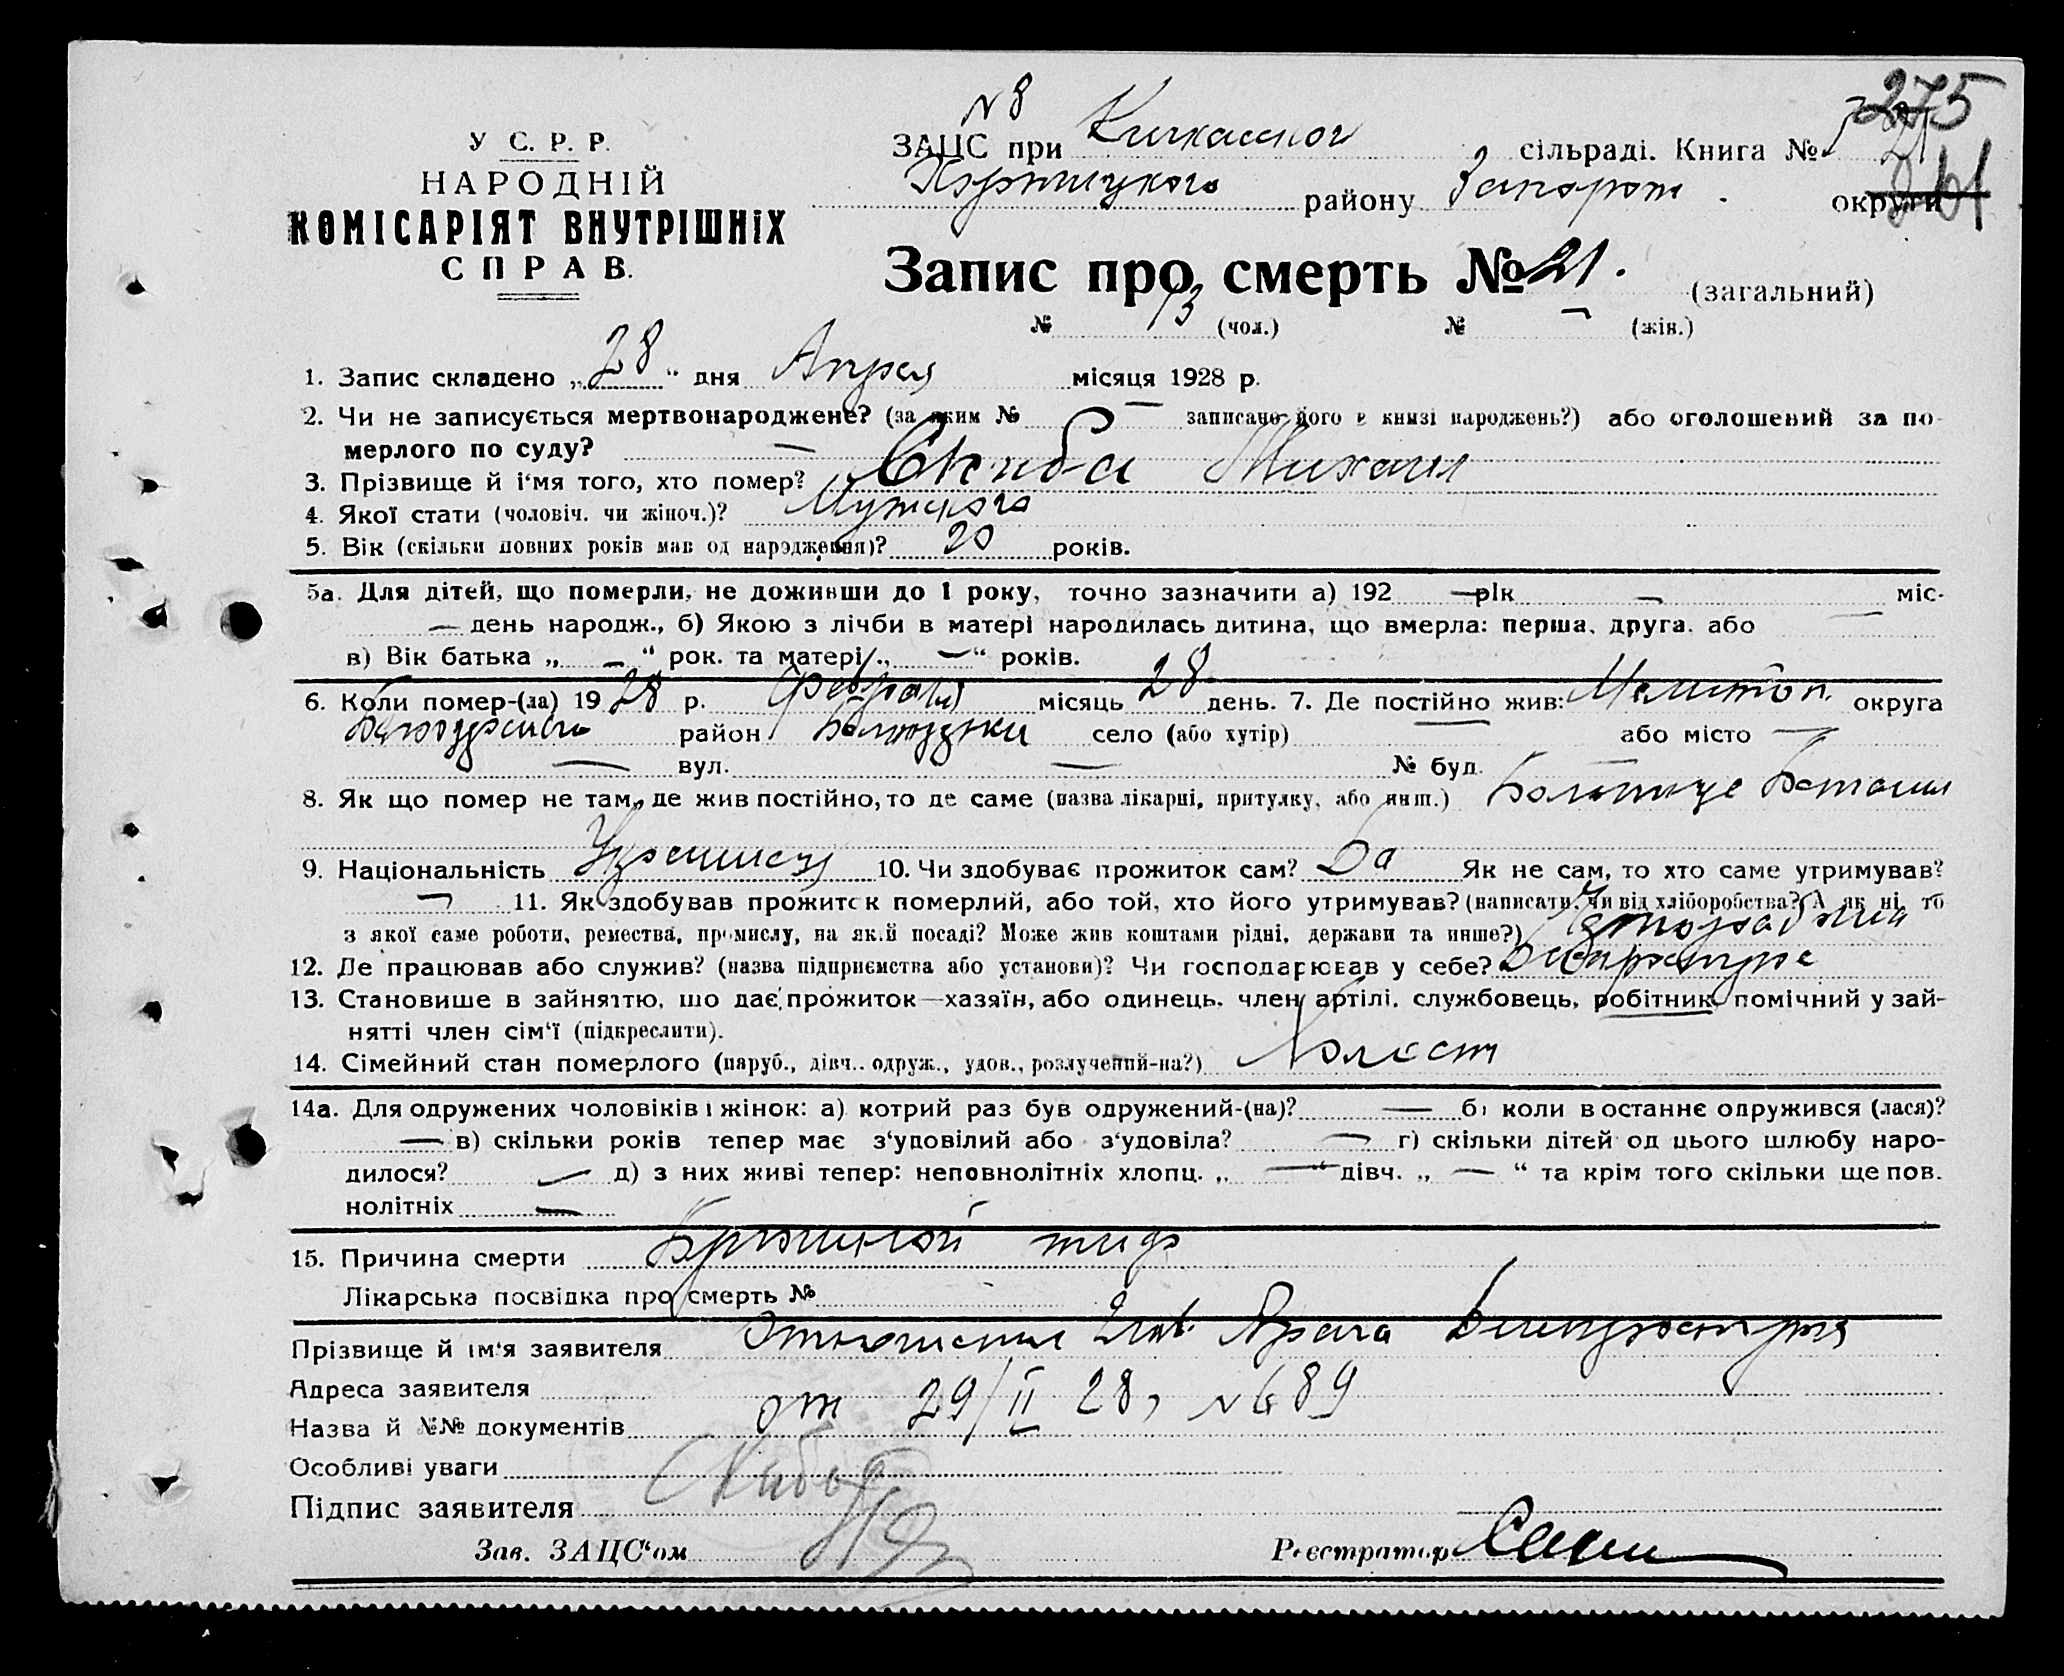 275
№ 8
У С. Р. Р.
НАРОДНІЙ
КОМІСАРІЯТ ВНУТРІШНІХ
СПРАВ.
ЗАЦС при Кичкасской сільраді. Книга № 21
Хортицкого району Запорож. округи 261
Запис про смерть № 21. (загальний)
№ 13 (чол.) № — (жін.)
1. Запис складено „ 28 “ дня Апреля місяця 1928 р.
2. Чи не записується мертвонароджене? (за яким № — записано його в книзі народжень?) або оголошений за по-
мерлого по суду? —
3. Прізвище й і‘мя того, хто помер? Скиба Михаил
4. Якої стати (чоловіч. чи жіноч.)? Мужского
5. Вік (скільки повних років мав од народження)? 20 років.
5а. Для дітей, що померли, не доживши до 1 року, точно зазначити а) 192 — рік — міс-
— день народж., б) Якою з лічби в матері народилась дитина, що вмерла: перша, друга, або —
в) Вік батька „ — “ рок. та матері „ — “ років.
6. Коли помер-(ла) 19 28 р. Февраля місяць 28 день. 7. Де постійно жив: Мелитоп. округа
район село (або хутір) — або місто —
— вул. — № буд. —
8. Як що помер не там, де жив постійно, то де саме (назва лікарні, притулку, або инш.) Больнице
9. Національність Украинец 10. Чи здобуває прожиток сам? Да Як не сам, то хто саме утримував?
— 11. Як здобував прожиток померлий, або той, хто його утримував? (написати, чи від хліборобства? А як ні, то
з якої саме роботи, ремества, промислу, на якій посаді? Може жив коштами рідні, держави та инше?) Чернорабочий
12. Де працював або служив? (назва підприємства або установи)? Чи господарював у себе? Днепрострое
13. Становище в зайняттю, що дає прожиток—хазяїн, або одинець, член артілі, службовець, робітник, помічний у зай-
нятті член сім‘ї (підкреслити).
14. Сімейний стан померлого (паруб., дівч.. одруж., удов., розлучений-на?) Холост
14а. Для одружених чоловіків і жінок: а) котрий раз був одружений-(на)? — б) коли в останнє одружився (лася)?
— в) скільки років тепер має з‘удовілий або з‘удовіла? — г) скільки дітей од цього шлюбу наро-
дилося? — д) з них живі тепер: неповнолітніх хлопц. „ — “ дівч. „ — “ та крім того скільки ще пов.
нолітніх —
15. Причина смерти Брюшной тиф
Лікарська посвідка про смерть №
Прізвище й ім‘я заявителя Отношение Глав. Врача Днепростроя
Адреса заявителя
Назва й №№ документів от 29/II 28, № 689
Особливі уваги
Підпис заявителя
Зав. ЗАЦС‘ом Реєстратор